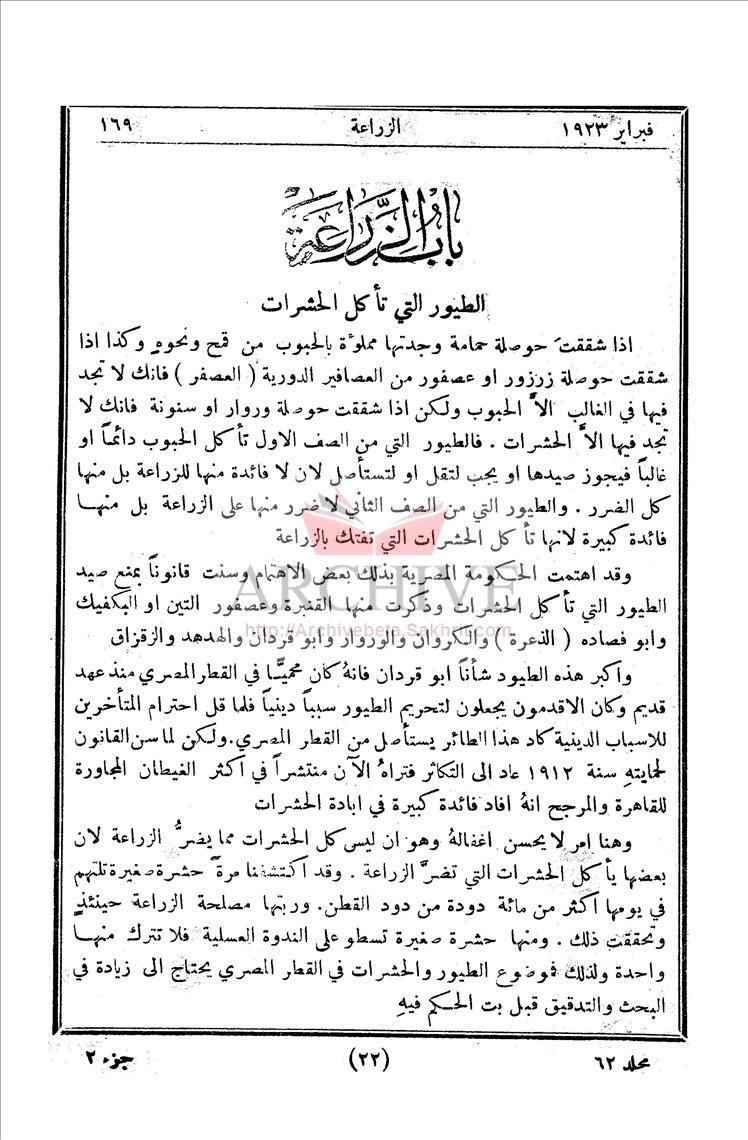 فبراير ١٩٢٣ الزراعة ١٦٩
باب الزَّرَاعَة
الطيور التي تأكل الحشرات
اذا شققتَ حوصلة حمامة وجدتها مملوءة بالحبوب من قمح ونحوهِ وكذا اذا
شققت حوصلة زرزور او عصفور من العصافير الدورية ( العصفر ) فانك لا تجد
فيها في الغالب الاَّ الحبوب ولكن اذا شققت حوصلة وروار او سنونة فانك لا
تجد فيها الاَّ الحشرات . فالطيور التي من الصف الاول تأكل الحبوب دائماً او
غالباً فيجوز صيدها او يجب لتقل او لتستأصل لان لا فائدة منها للزراعة بل منها
كل الضرر . والطيور التي من الصف الثاني لا ضرر منها على الزراعة بل منها
فائدة كبيرة لانها تأكل الحشرات التي تفتك بالزراعة
وقد اهتمت الحكومة المصرية بذلك بعض الاهتمام وسنت قانوناً بمنع صيد
الطيور التي تأكل الحشرات وذكرت منها القنبرة وعصفور التين او البكفيك
وابو فصاده ( الذعرة ) والكروان والوروار وابو قردان والهدهد والزقزاق
واكبر هذه الطيود شأناً ابو قردان فانهُ كان محميًّا في القطر المصري منذ عهد
قديم وكان الاقدمون يجعلون لتحريم الطيور سبباً دينياً فلما قل احترام المتأخرين
للاسباب الدينية كاد هذا الطائر يستأصل من القطر المصري. ولكن لما سن القانون
لحمايتهِ سنة ١٩١٢ عاد الى التكاثر فتراهُ الآن منتشراً في اكثر الغيطان المجاورة
للقاهرة والمرجح انهُ افاد فائدة كبيرة في ابادة الحشرات
وهنا امر لا يحسن اغفالهُ وهو ان ليس كل الحشرات مما يضرُّ الزراعة لان
بعضها يأكل الحشرات التي تضرُّ الزراعة . وقد اكتشفنا مرةً حشرة صغيرة تلتهم
في يومها اكثر من مائة دودة من دود القطن. وربتها مصلحة الزراعة حينئذٍ
وتحققت ذلك . ومنها حشرة صغيرة تسطو على الندوة العسلية فلا تترك منها
واحدة ولذلك فموضوع الطيور والحشرات في القطر المصري يحتاج الى زيادة في
البحث والتدقيق قبل بت الحكم فيهِ
مجلد ٦٢ (٢٢) جزء ٢
ARCHIVE
http://Archivebeta.Sakhrit.com